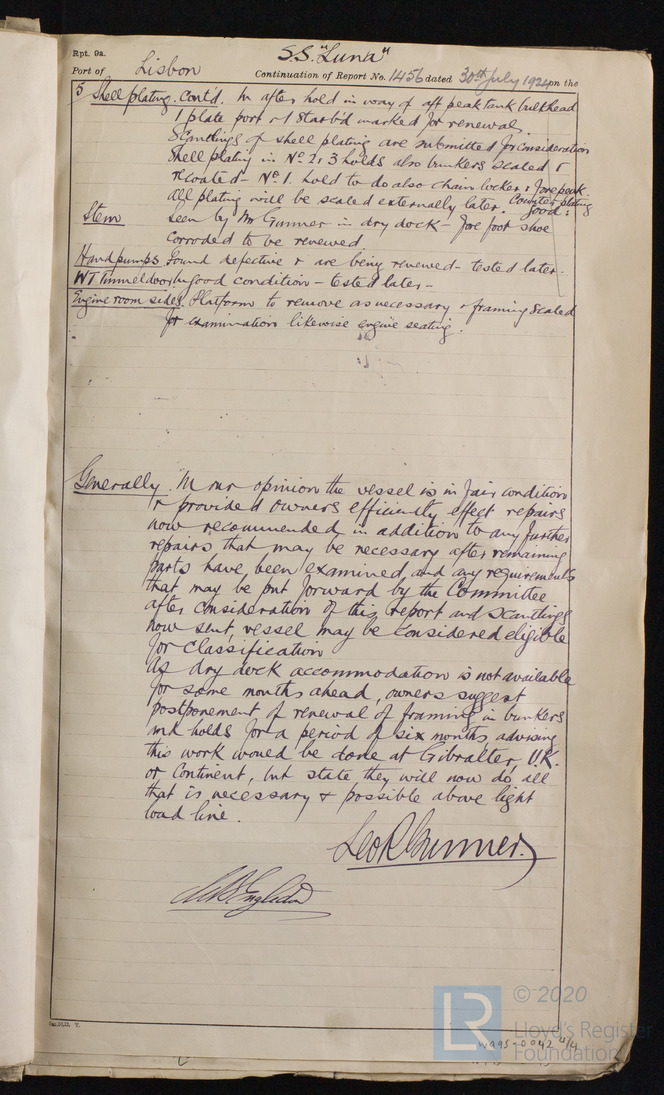 Rpt. 9a.
S.S. "Luna"
Port of Lisbon Continuation of Report No. 1456 dated 30th July 1924 on the
5 Shell plating. Contd. In after hold in way of aft peak tank bulkhead
1 plate port & 1 starb'd marked for renewal.
Scantlings of shell plating are submitted for consideration
Shell plating in No 2 & 3 holds also bunkers scaled &
recoated - No 1. hold to do also chain locker & fore peak.
All plating will be scaled externally later. Counter plating good:
Stem seen by Mr Gunner in dry dock - fore foot shoe
corroded to be renewed.
Hand pumps found defective & are being renewed - tested later.
WT Tunnel door In good condition - tested later -
Engine room sides. Platform to remove as necessary & framing scaled
for examination likewise engine seating.
Generally In our opinion the vessel is in fair condition
& provided owners efficiently effect repairs
now recommended in addition to any further
repairs that may be necessary after remaining
parts have been examined and any requirements
that may be put forward by the Committee
after consideration of this report and scantlings
now sent, vessel may be considered eligible
for classification
As dry dock accommodation is not available
for some months ahead, owners suggest
postponement of renewal of framing in bunkers
and holds for a period of six months advising
this work would be done at Gibralter, U.K.
or Continent, but state they will now do all
that is necessary & possible above light
load line.
Leo R Gunner.
© 2020
LR
Lloyd's Register
Foundation
W995-0042 4/4